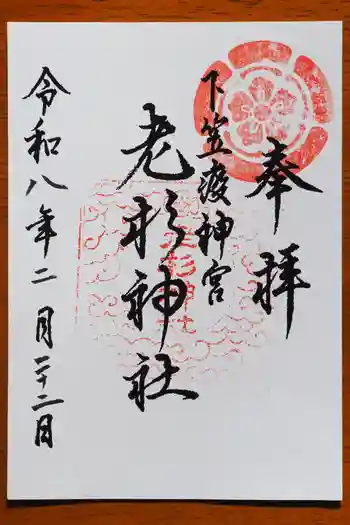 奉拝
下笠渡神宮
老杉神社
令和八年二月二十二日